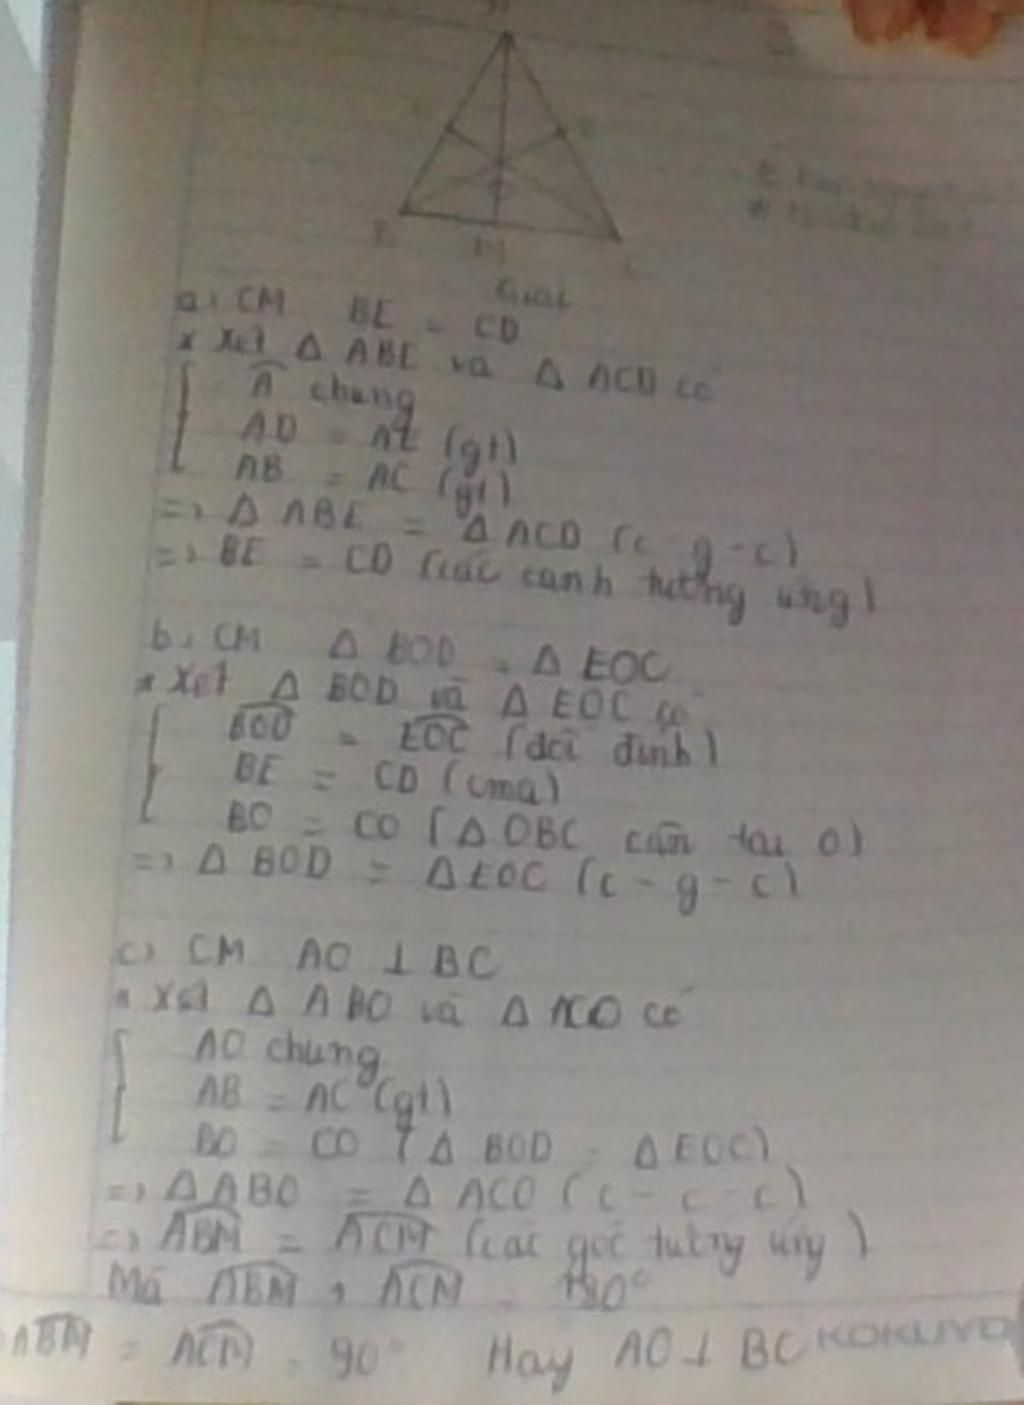 Giải
a, CM BE = CD
* Xét Δ ABE và Δ ACD có
A chung
AD = AE (gt)
AB = AC (gt)
=> Δ ABE = Δ ACD (c g-c)
=> BE = CD (các cạnh tương ứng)
b, CM Δ BOD = Δ EOC
* Xét Δ BOD và Δ EOC có
BOD = EOC (đối đỉnh)
BE = CD (cma)
BO = CO (Δ OBC cân tại O)
=> Δ BOD = Δ EOC (c-g-c)
c, CM AO ⊥ BC
* Xét Δ ABO và Δ ACO có
AO chung
AB = AC (gt)
BO = CO (Δ BOD = Δ EOC)
=> Δ ABO = Δ ACO (c-c-c)
=> ABM = ACM (các góc tương ứng)
Mà ABM + ACM = 180°
ABM = ACM = 90° Hay AO ⊥ BC KOKUYO